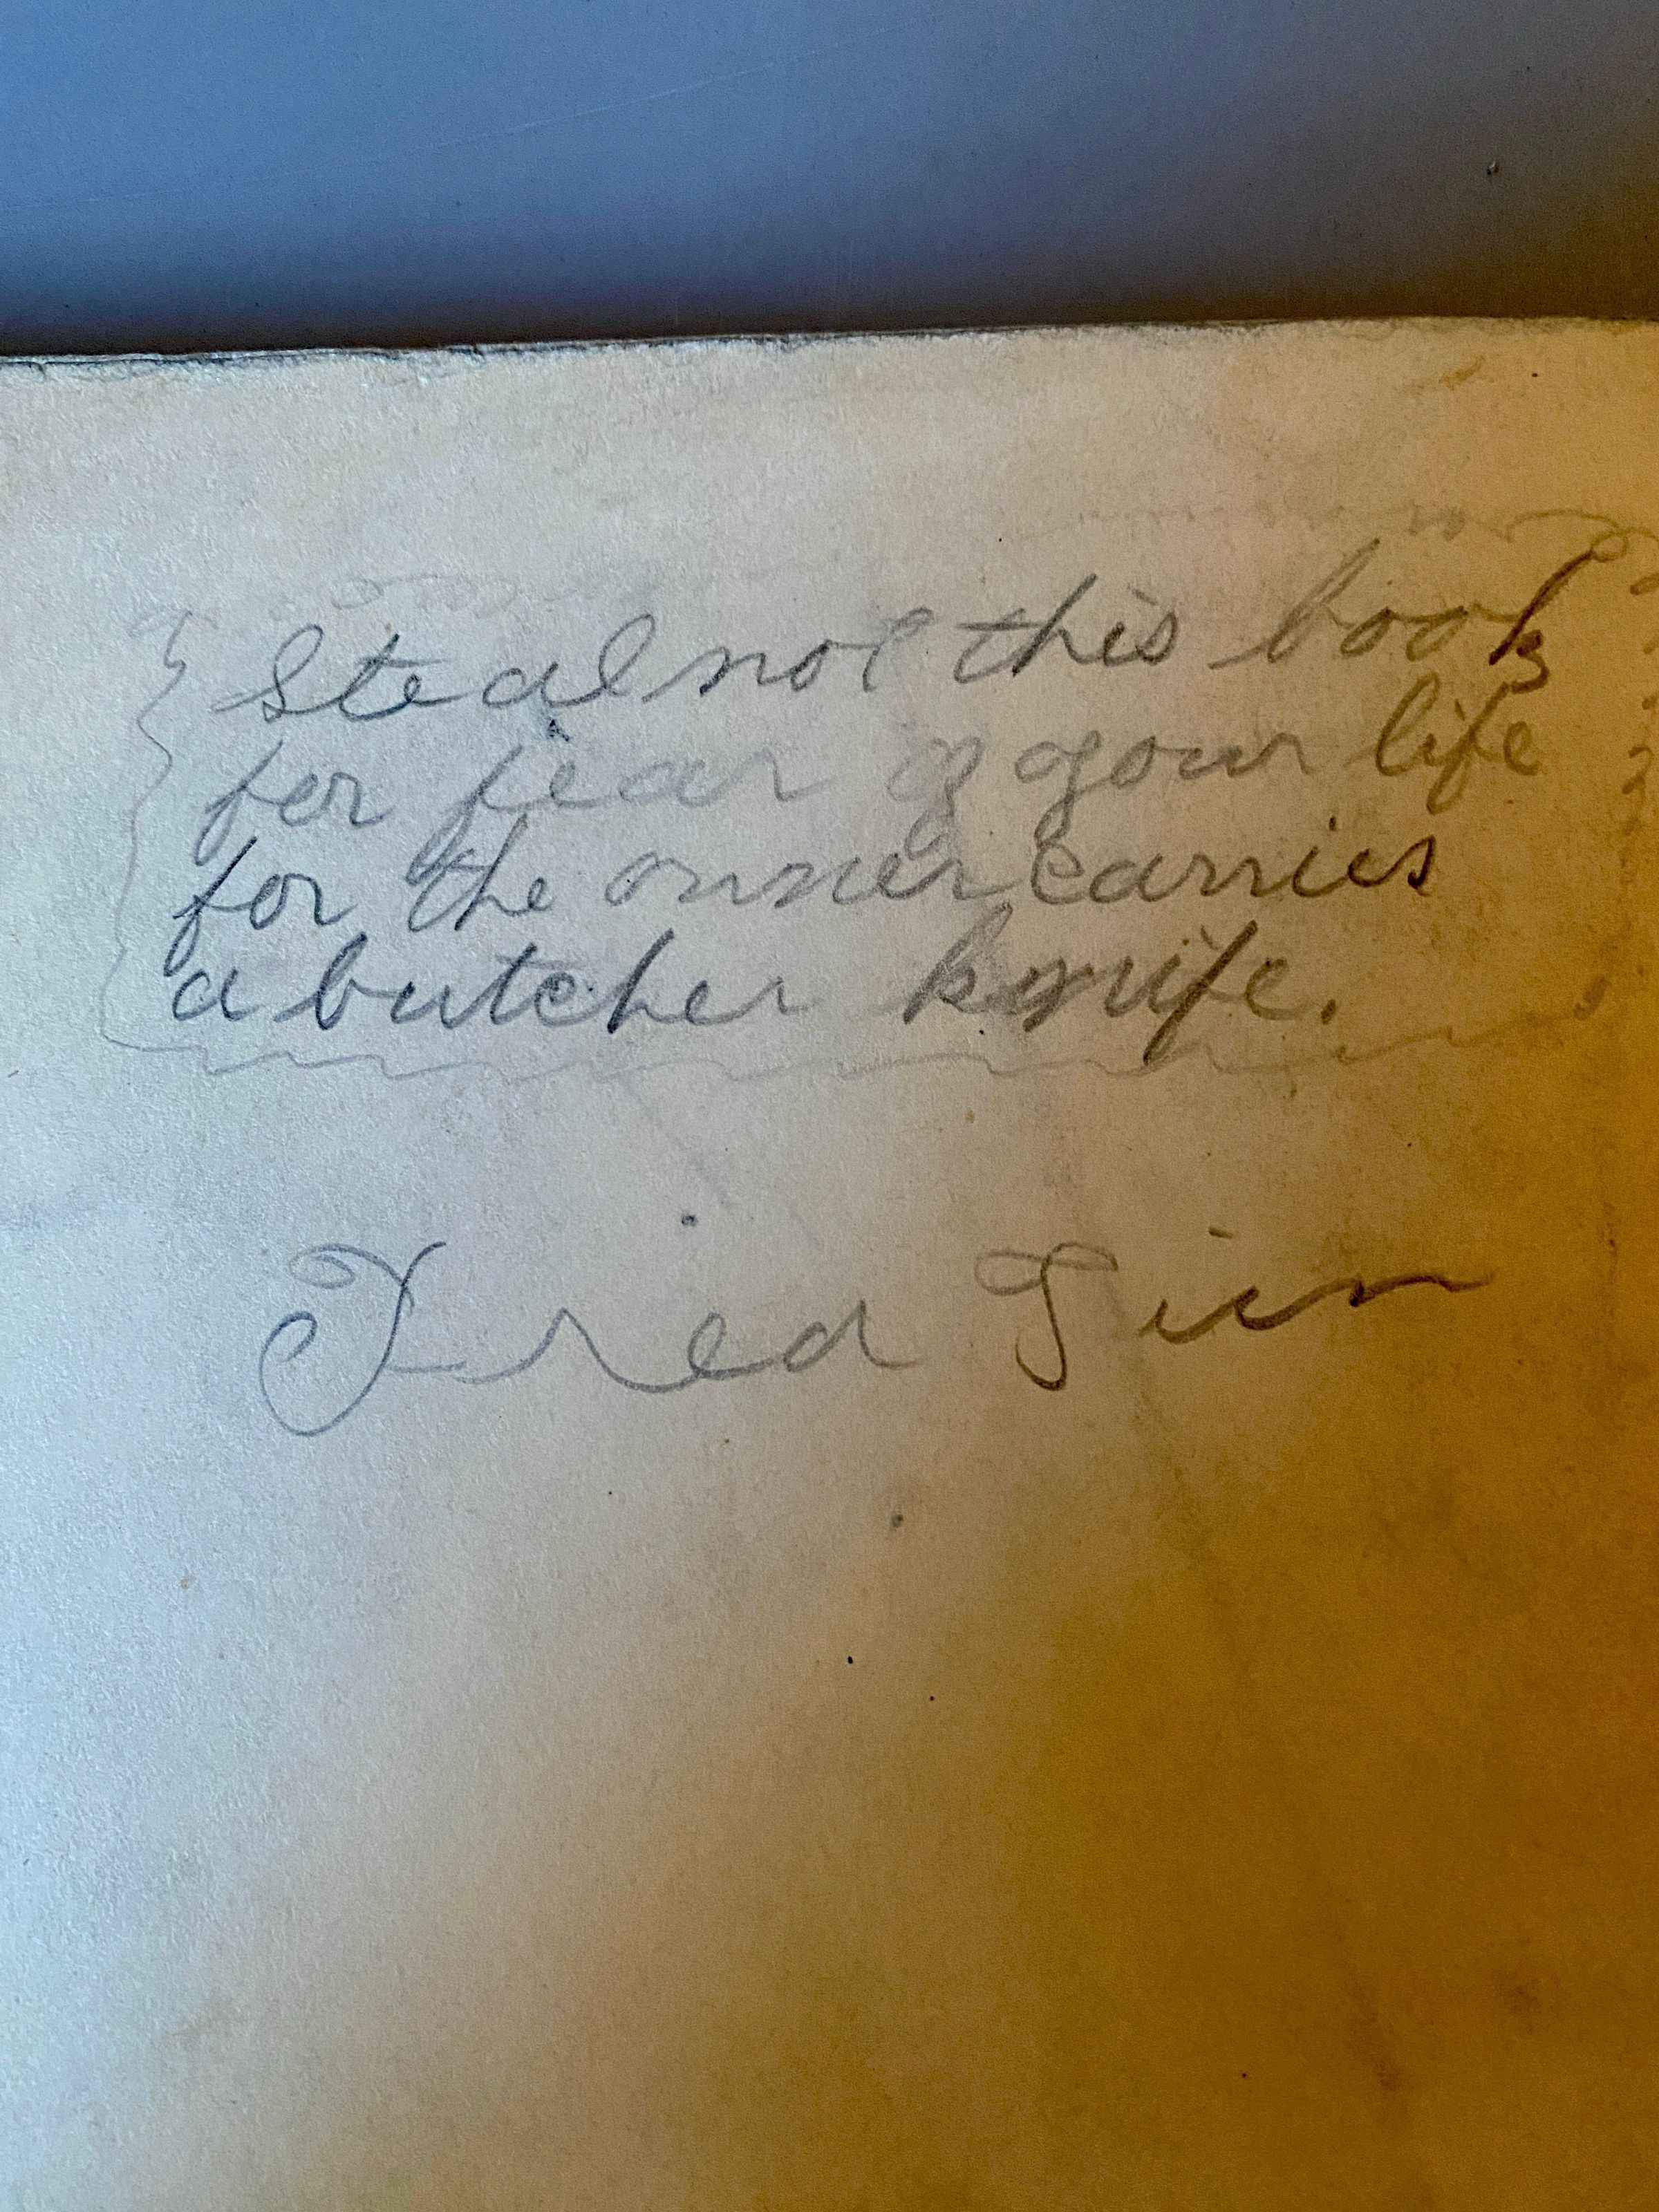 Steal not this book
for fear of your life
for the owner carries
a butcher knife.
Fred